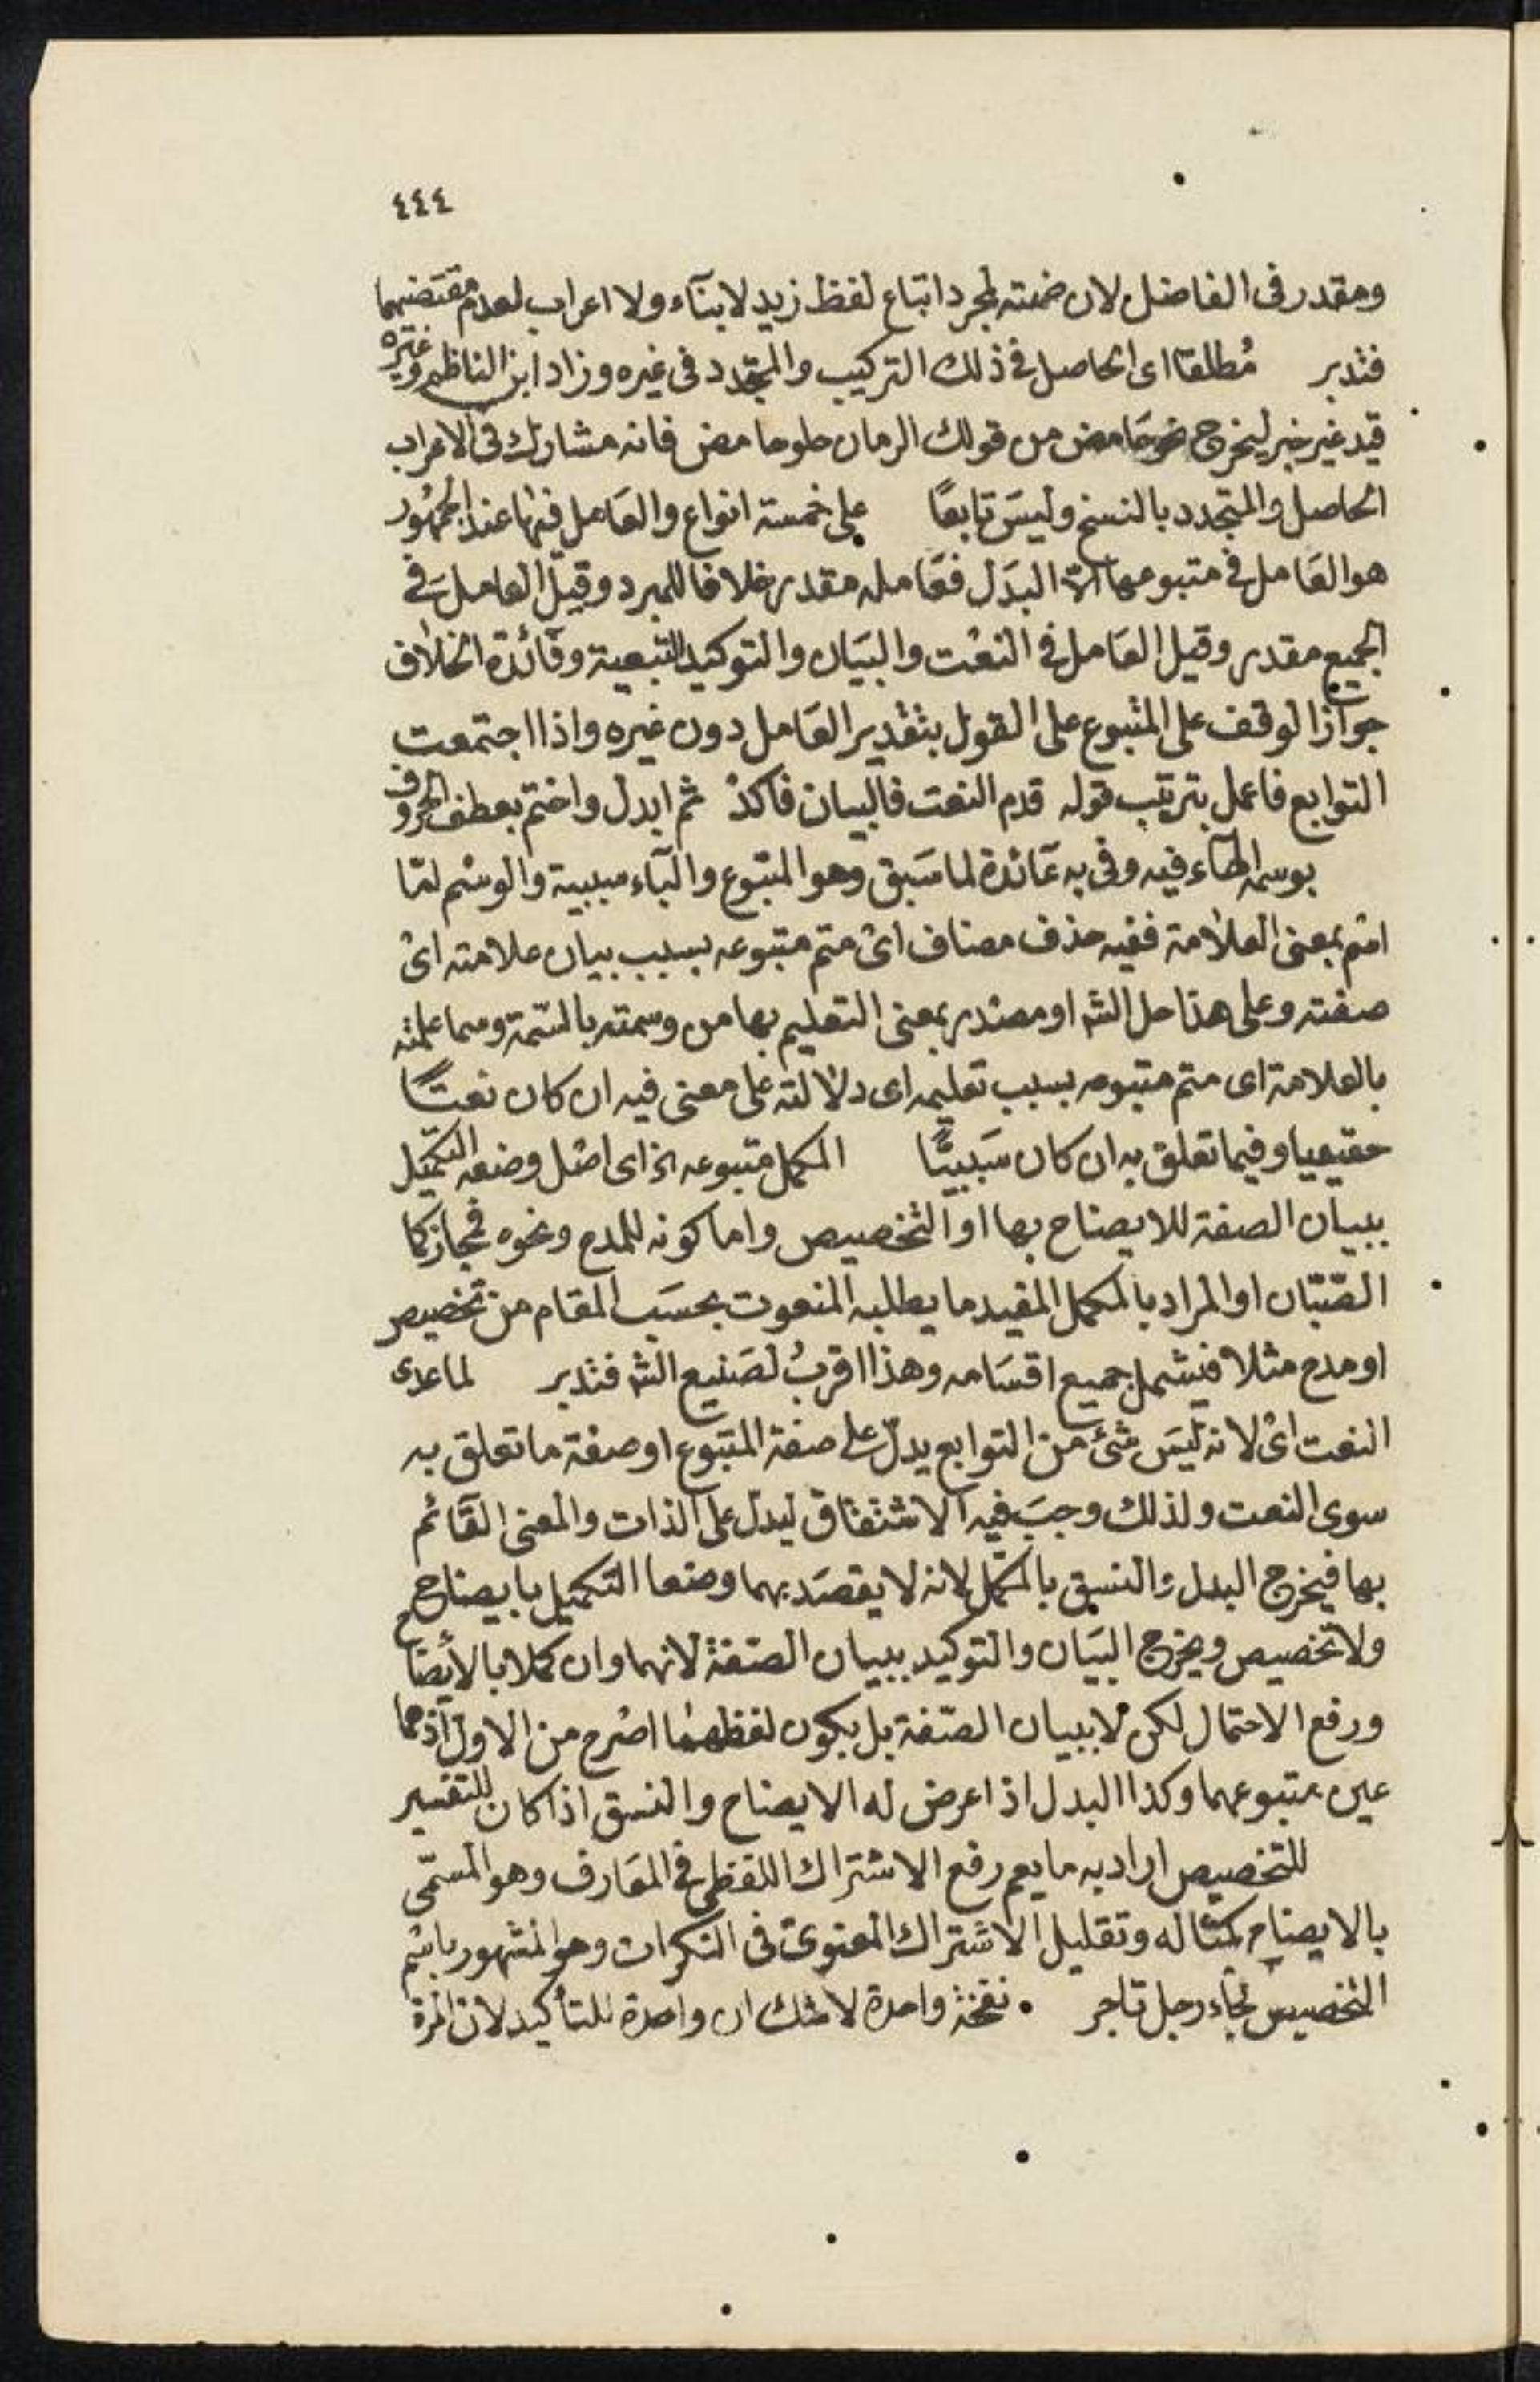 ٤٤٤
ومقدر في الفاضل لان ضمته لمجرد اتباع لفظ زيد لا بنآء ولا اعراب لعدم مقتضيهما
فتدبر مُطلقا اى الحاصل في ذلك التركيب والمتجدد في غيره وزاد ابن الناظم وغيره
قيد غير خبر ليخرج نحو حَامض من قولك الرمان حلو حامض فانه مشارك في الاعراب
الحاصل والمتجدد بالنسخ وليسَ تابعًا على خمسة انواع والعَامل فيها عند الجمهُور
هو العَامل في متبوعها الّا البدَل فعَامله مقدر خلافا للمبرد وقيل العامل في
الجميع مقدر وقيل العَامل في النعْت والبيَان والتوكيد التبعية وفائدة الخلاف
جواز الوقف على المتبوع على القول بتقدير العَامل دون غيره واذا اجتمعت
التوابع فاعمل بترتيب قوله قدم النعت فالبيان فاكدْ ثم ابدل واختم بعطف الحروف
بوسمه الهآء فيه وفي به عَائدة لما سَبق وهو المتبوع والبآء سببية والوسْم امّا
اسْم بمعنى العلامة ففيه حذف مضاف اىْ متم متبوعه بسبب بيان علامته اىْ
صفته وعلى هذا حل الش او مصْدر بمعنى التعليم بها من وسمته بالسّمة وسما علمته
بالعلامة اى متم متبوعه بسبب تعليمه اى دلالته على معنى فيه ان كان نعتًا
حقيقيا وفيما تعلق به ان كان سَببيًّا المكمل متبوعه الخ اى اصْل وضعه التكميل
ببيان الصفة للايضاح بها او التخصيص واما كونه للمدح ونحوه فمجاز كما
الصّبّان او المراد بالمكمل المفيد ما يطلبه المنعوت بحسَب المقام من تخصيص
او مدح مثلا فيشمل جميع اقسَامه وهذا اقربُ لصَنيع الش فتدبر لما عدى
النعت اىْ لانه ليسَ شئ من التوابع يدلّ على صفة المتبوع او صفة ما تعلق به
سوى النعت ولذلك وجبَ فيه الاشتقاق ليدل على الذات والمعنى القَائم
بها فيخرج البدل والنسق بالمكمّل لانه لا يقصَد بهما وضعا التكميل بايضاح
ولا تخصيص ويخرج البيَان والتوكيد ببيان الصّفة لانهما وان كملا بالأيضاح
ورفع الاحتمال لكن لا ببيان الصّفة بل بكون لفظهما اصْرح من الاول اذ هما
عين متبوعهما وكذا البدل اذا عرض له الايضاح والنسق اذا كان للتفسير
للتخصيص اراد به ما يعم رفع الاشتراك اللفظي في المعَارف وهو المسمّى
بالايضاح كمثاله وتقليل الاشتراك المعنوى في النكرات وهو المشهور باسْم
التخصيص كجاء رجل تاجر نفخة واحدة لا شك ان واحدة للتأكيد لان المرة